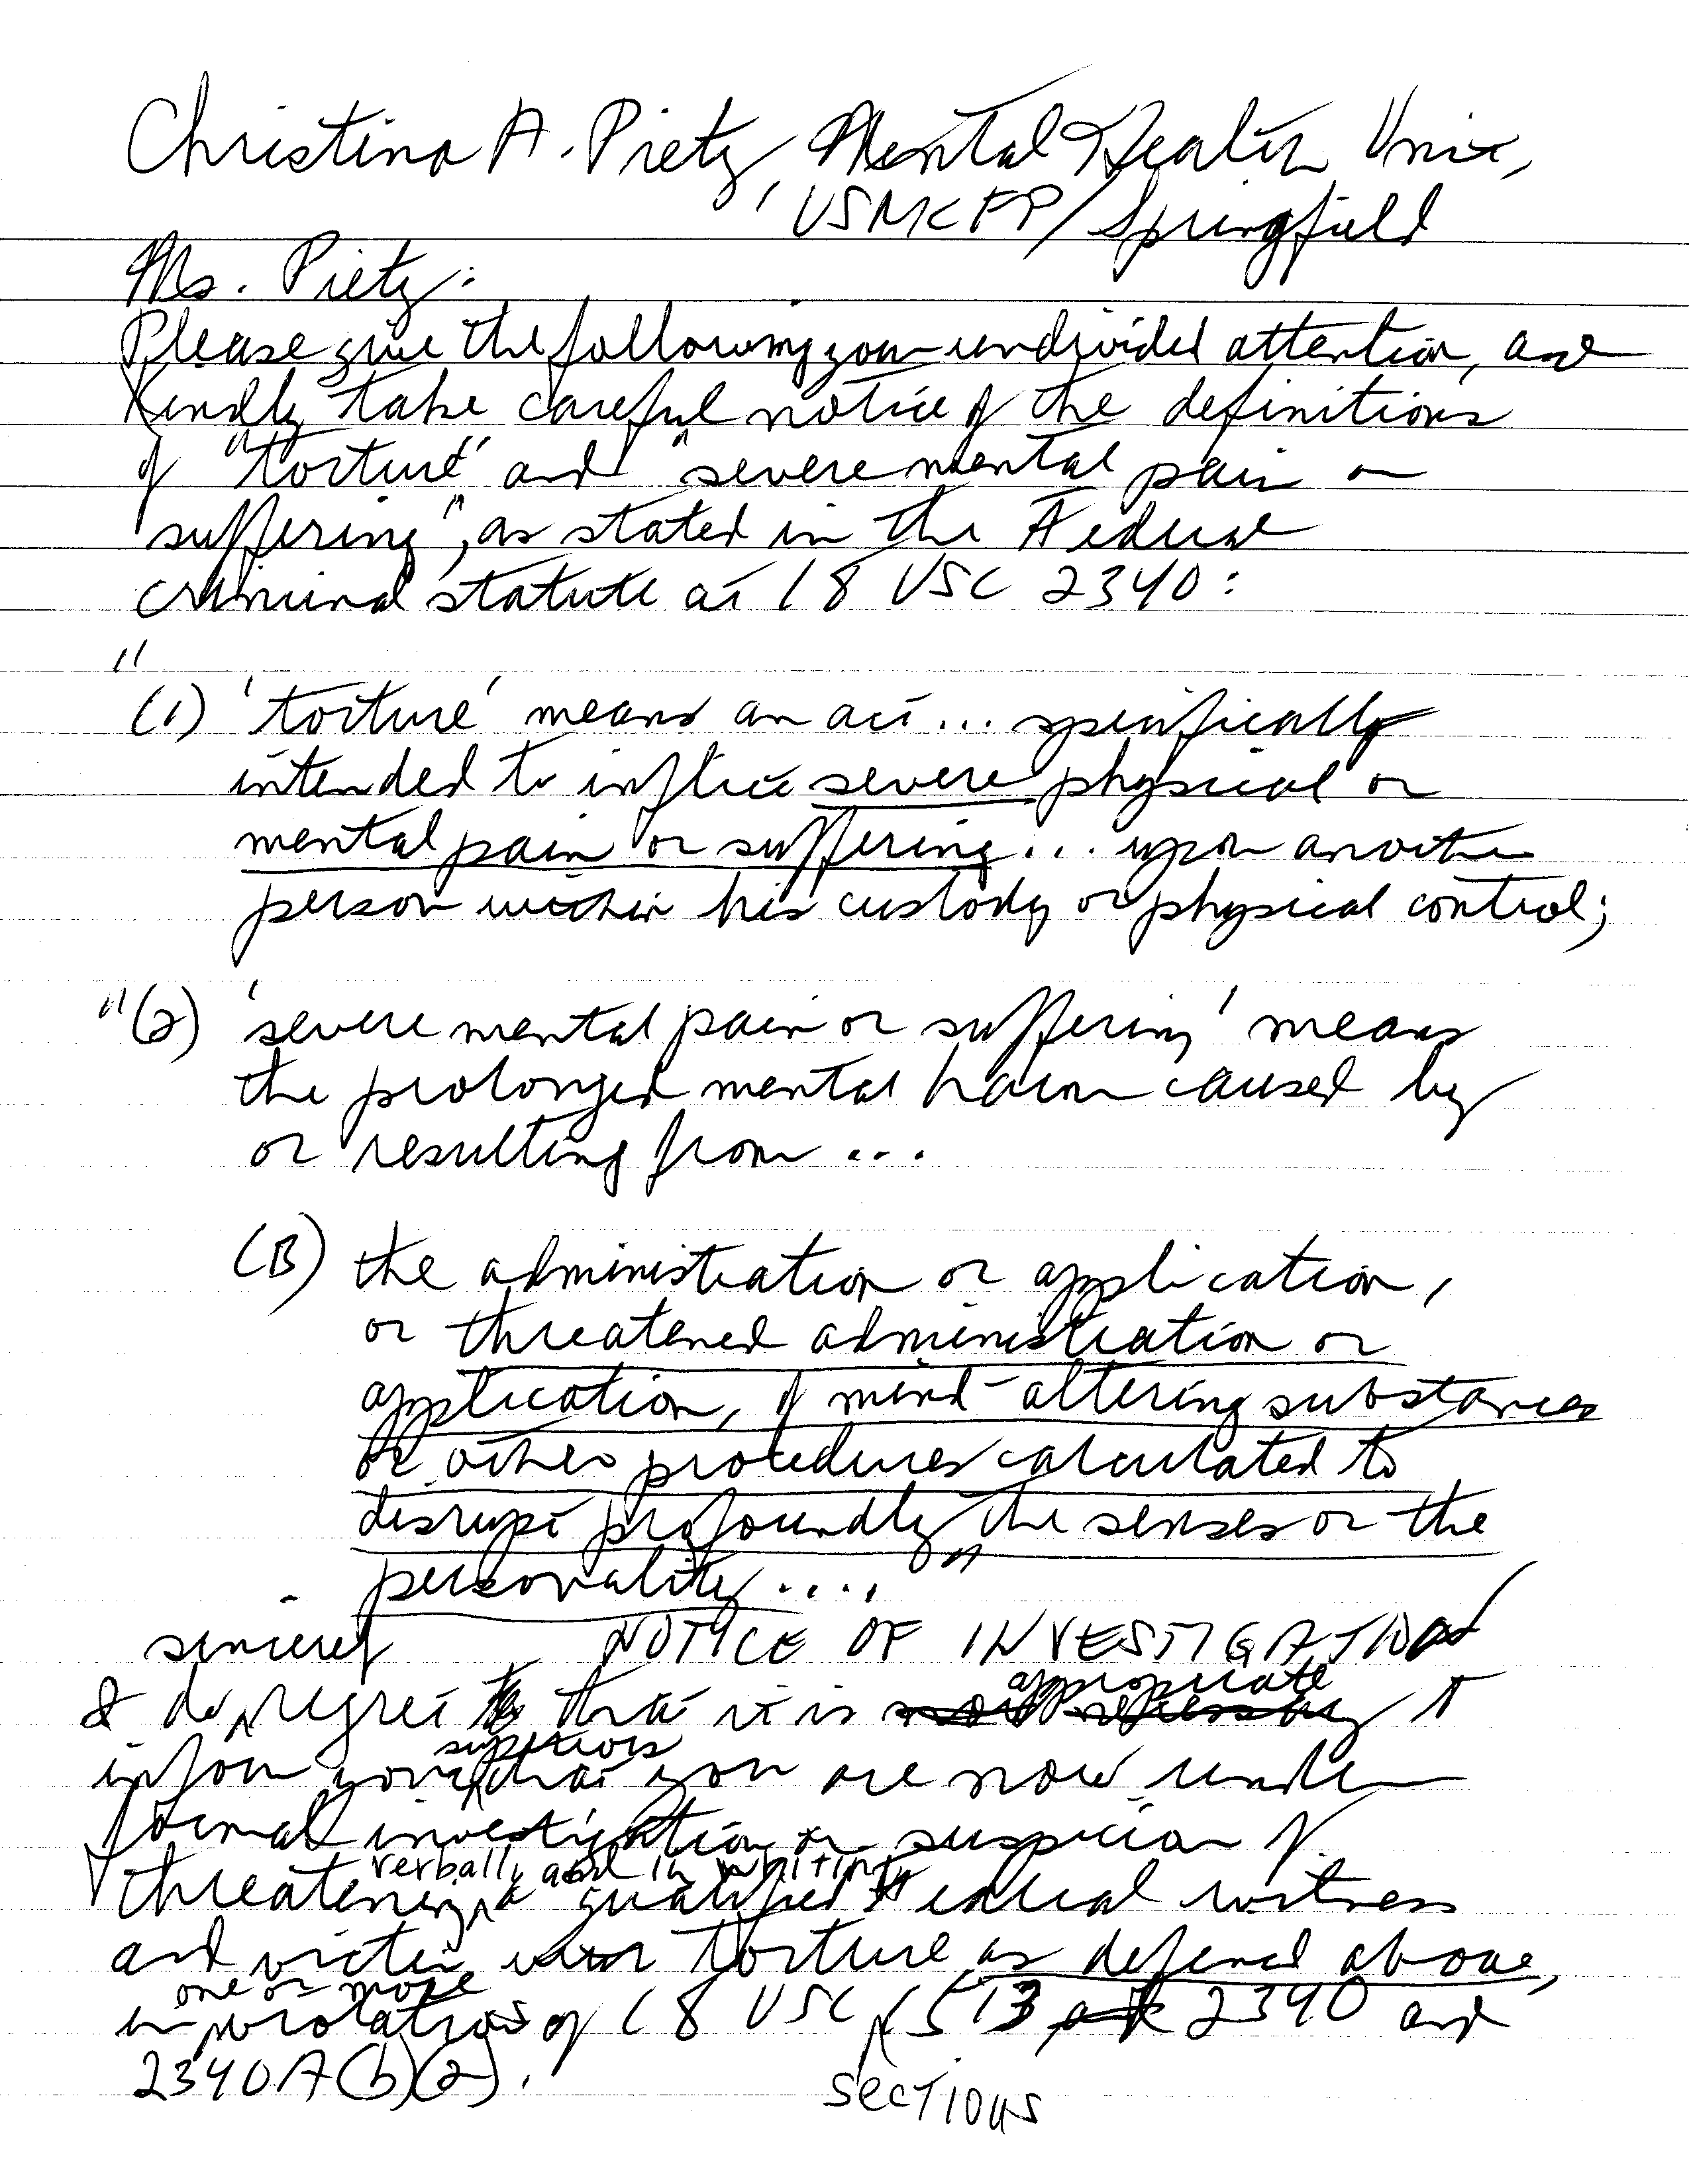 Christina A. Pietz, Mental Health Unit,
USMCFP/Springfield
Ms. Pietz:
Please give the following your undivided attention, and
kindly take careful notice of the definitions
of "torture" and "severe mental pain or
suffering", as stated in the Federal
criminal statute at 18 USC 2340:
"
(1) 'torture' means an act... specifically
intended to inflict severe physical or
mental pain or suffering... upon another
person within his custody or physical control;
"(2) 'severe mental pain or suffering' means
the prolonged mental harm caused by
or resulting from ...
(B) the administration or application,
or threatened administration or
application, of mind-altering substances
or other procedures calculated to
disrupt profoundly the senses or the
personality ....
NOTICE OF INVESTIGATION
I do sincerely regret that it is appropriate to
inform your superiors that you are now under
formal investigation on suspicion of
threatening, verbally and in writing, a qualified Federal witness
and victim with torture as defined above,
in one or more violations of 18 USC sections 1513, 2340 and
2340A(b)(2).